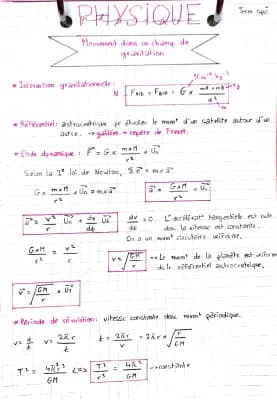 PHYSIQUE
Term spé
Mouvement dans un champ de
gravitation
* Interaction gravitationnelle:
N
F A/B = F B/A = G × mA × mB / d²
* Référentiel: astrocentrique pr étudier le mvmt d'un satellite autour d'un
astre. → repère de Frenet.
* Etude dynamique: F = G × m×M / r² × Un
Selon la 2e loi de Newton, ΣF = m×a
G × m×M / r² × Un = m×a
a = G×M / r² × Un
a = v² / r Un + dv / dt Ut
dv / dt = 0 L'accélérat° tangentielle est nulle
donc la vitesse est constante.
On a un mvmt circulaire uniforme.
G×M / r² = v² / r
v = √ GM / r
→ Le mvmt de la planète est uniforme
ds le référentiel astrocentrique.
v = √ GM / r × Ut
* Période de révolution: vitesse constante donc mvmt périodique.
v = d / t v = 2πr / t t = 2πr / v = 2πr × √ r / GM
T² = 4π²r³ / GM <=> T² / r³ = 4π² / GM → constante